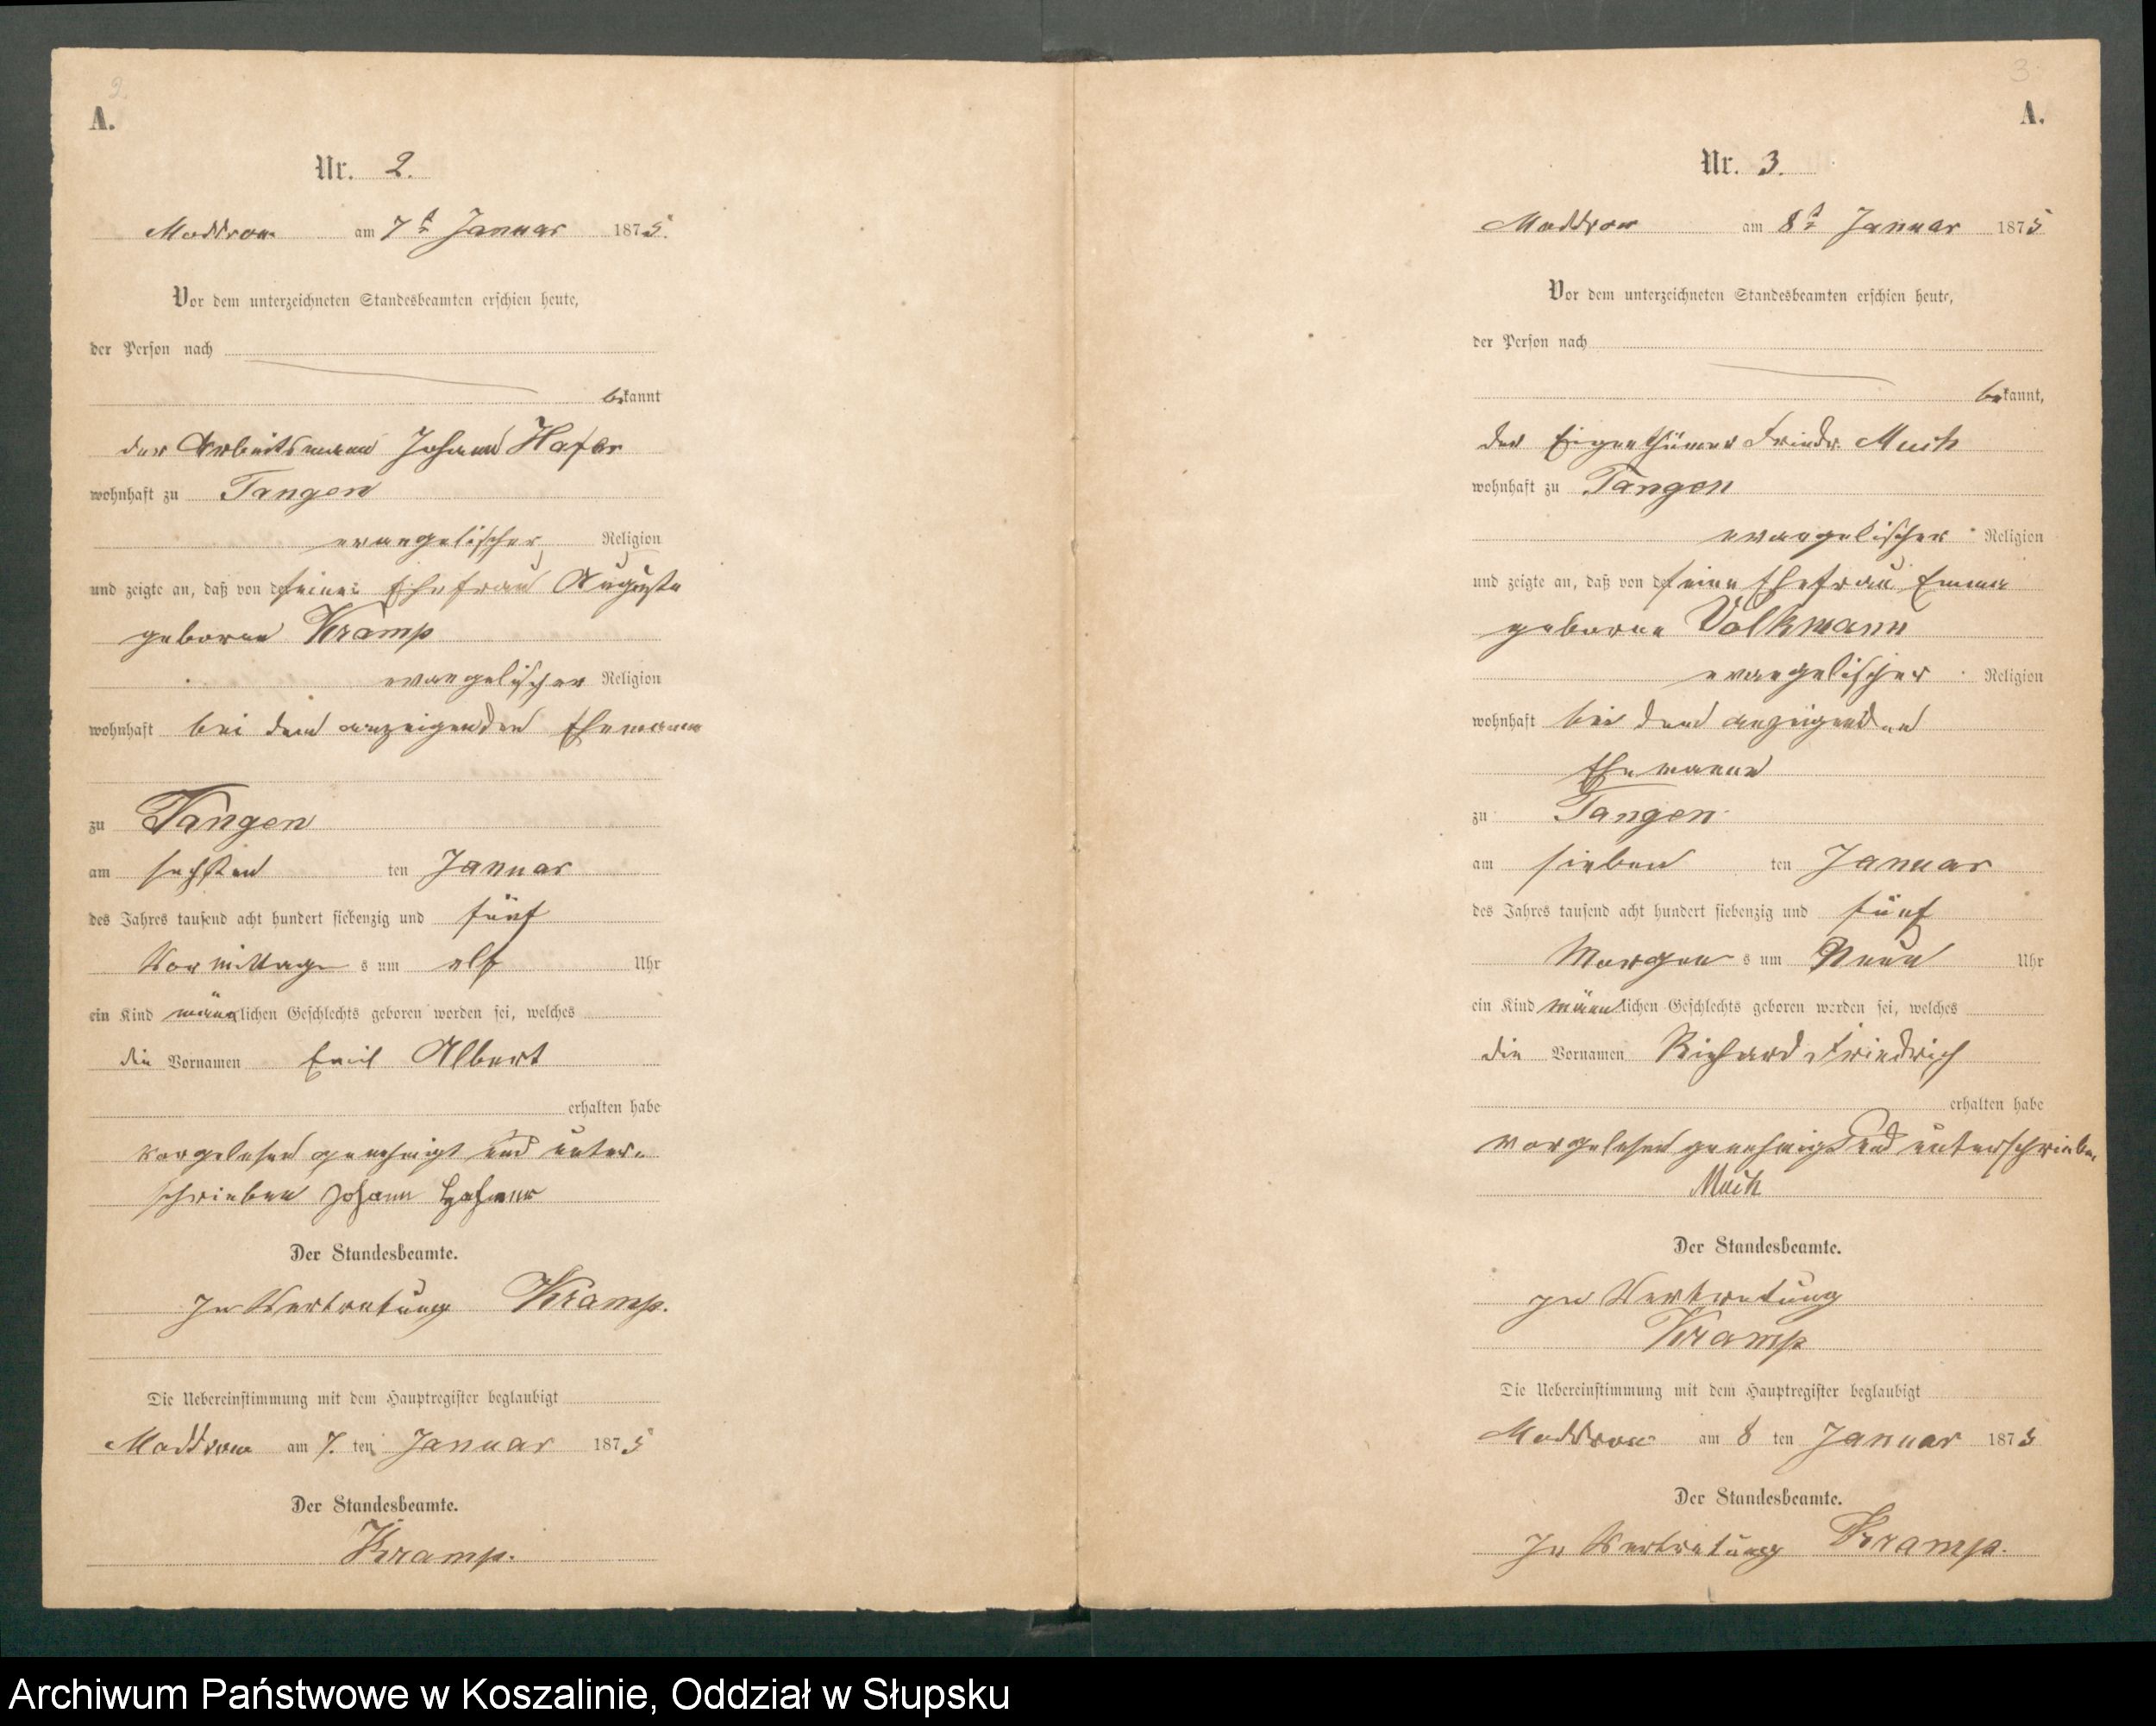 2.
A.
Nr. 2.
Moddrow am 7t Januar 1875.
Vor dem unterzeichneten Standesbeamten erschien heute,
der Person nach
bekannt
der Arbeitsmann Johann Hafer
wohnhaft zu Tangen
evangelischer Religion
und zeigte an, daß von der seiner Ehefrau Auguste
geborne Kramp
evangelischer Religion
wohnhaft bei dem anzeigenden Ehemann
zu Tangen
am sechsten ten Januar
des Jahres tausend acht hundert siebenzig und fünf
Vormittags um elf Uhr
ein Kind männlichen Geschlechts geboren worden sei, welches
die Vornamen Emil Albert
erhalten habe
vorgelesen genehmigt und unter-
schrieben Johann
Der Standesbeamte.
In Vertretung Kramp.
Die Uebereinstimmung mit dem Hauptregister beglaubigt
Moddrow am 7. ten Januar 1875
Der Standesbeamte.
Kramp.
3.
A.
Nr. 3.
Moddrow am 8t Januar 1875
Vor dem unterzeichneten Standesbeamten erschien heute,
der Person nach
bekannt,
der Eigenthümer Friedr. Much
wohnhaft zu Tangen
evangelischer Religion
und zeigte an, daß von der seine Ehefrau Emma
geborne Volkmann
evangelischer Religion
wohnhaft bei dem anzeigenden
Ehemann
zu Tangen
am sieben ten Januar
des Jahres tausend acht hundert siebenzig und fünf
Morgens um Neun Uhr
ein Kind männlichen Geschlechts geboren worden sei, welches
die Vornamen Richard Friedrich
erhalten habe
vorgelesen genehmigt und unterschrieben
Much
Der Standesbeamte.
In Vertretung
Kramp
Die Uebereinstimmung mit dem Hauptregister beglaubigt
Moddrow am 8 ten Januar 1875
Der Standesbeamte.
In Vertretung Kramp.
Archiwum Państwowe w Koszalinie, Oddział w Słupsku